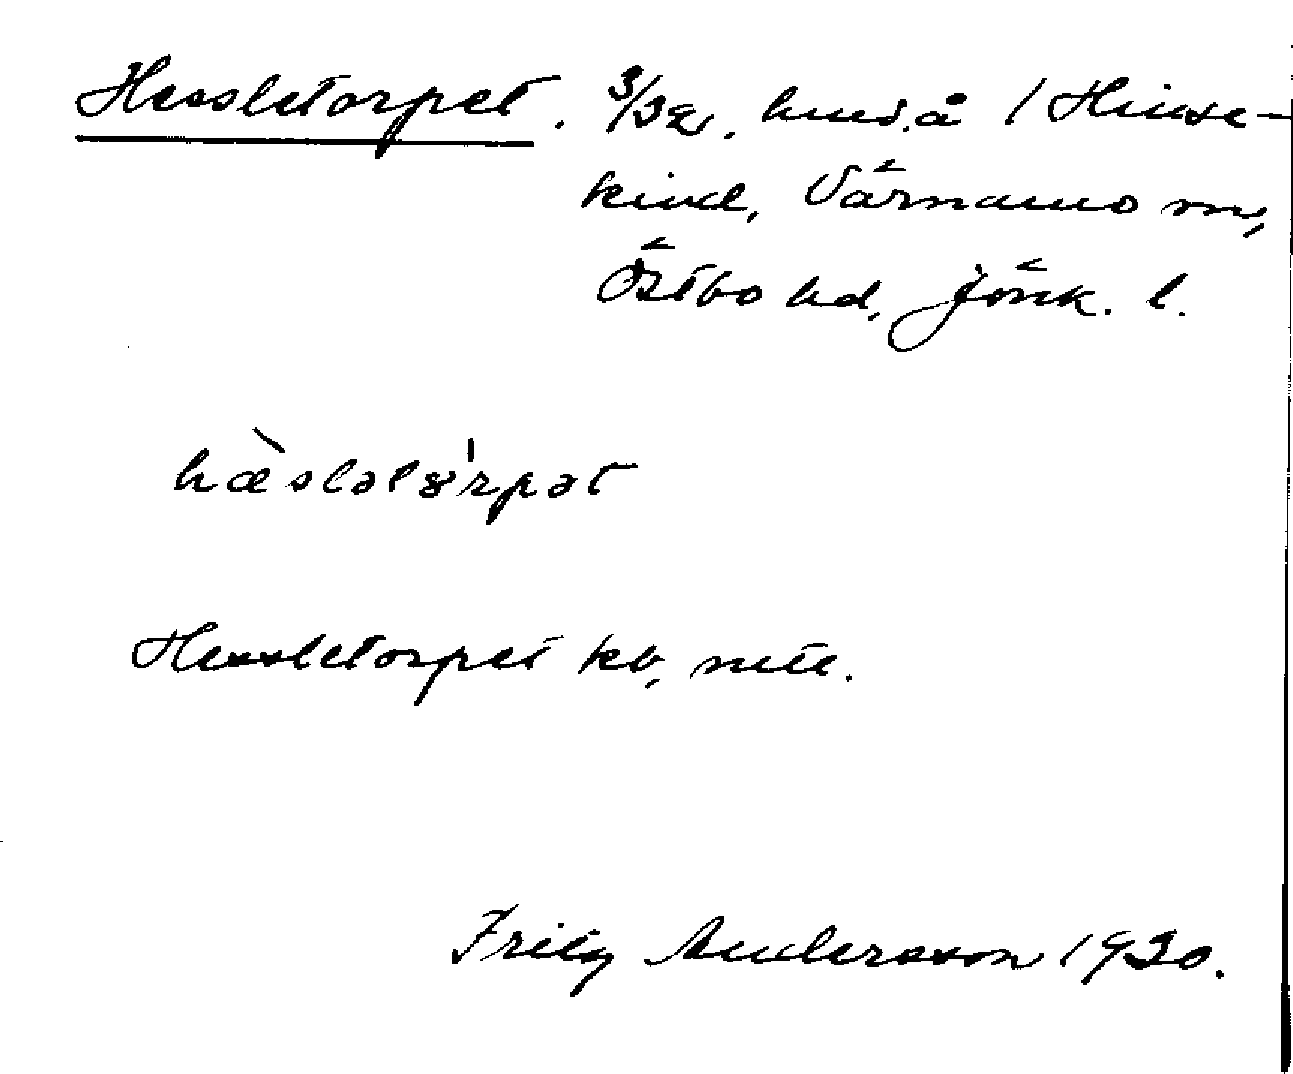 Hessletorpet. 3/32, hmd. å 1 Hinse-
kind, Värnamo sn,
Östbo hd, Jönk. l.
hæ̀slətʏ'rpət
Hessletorpet kb,
Fritz Andersson 1930.